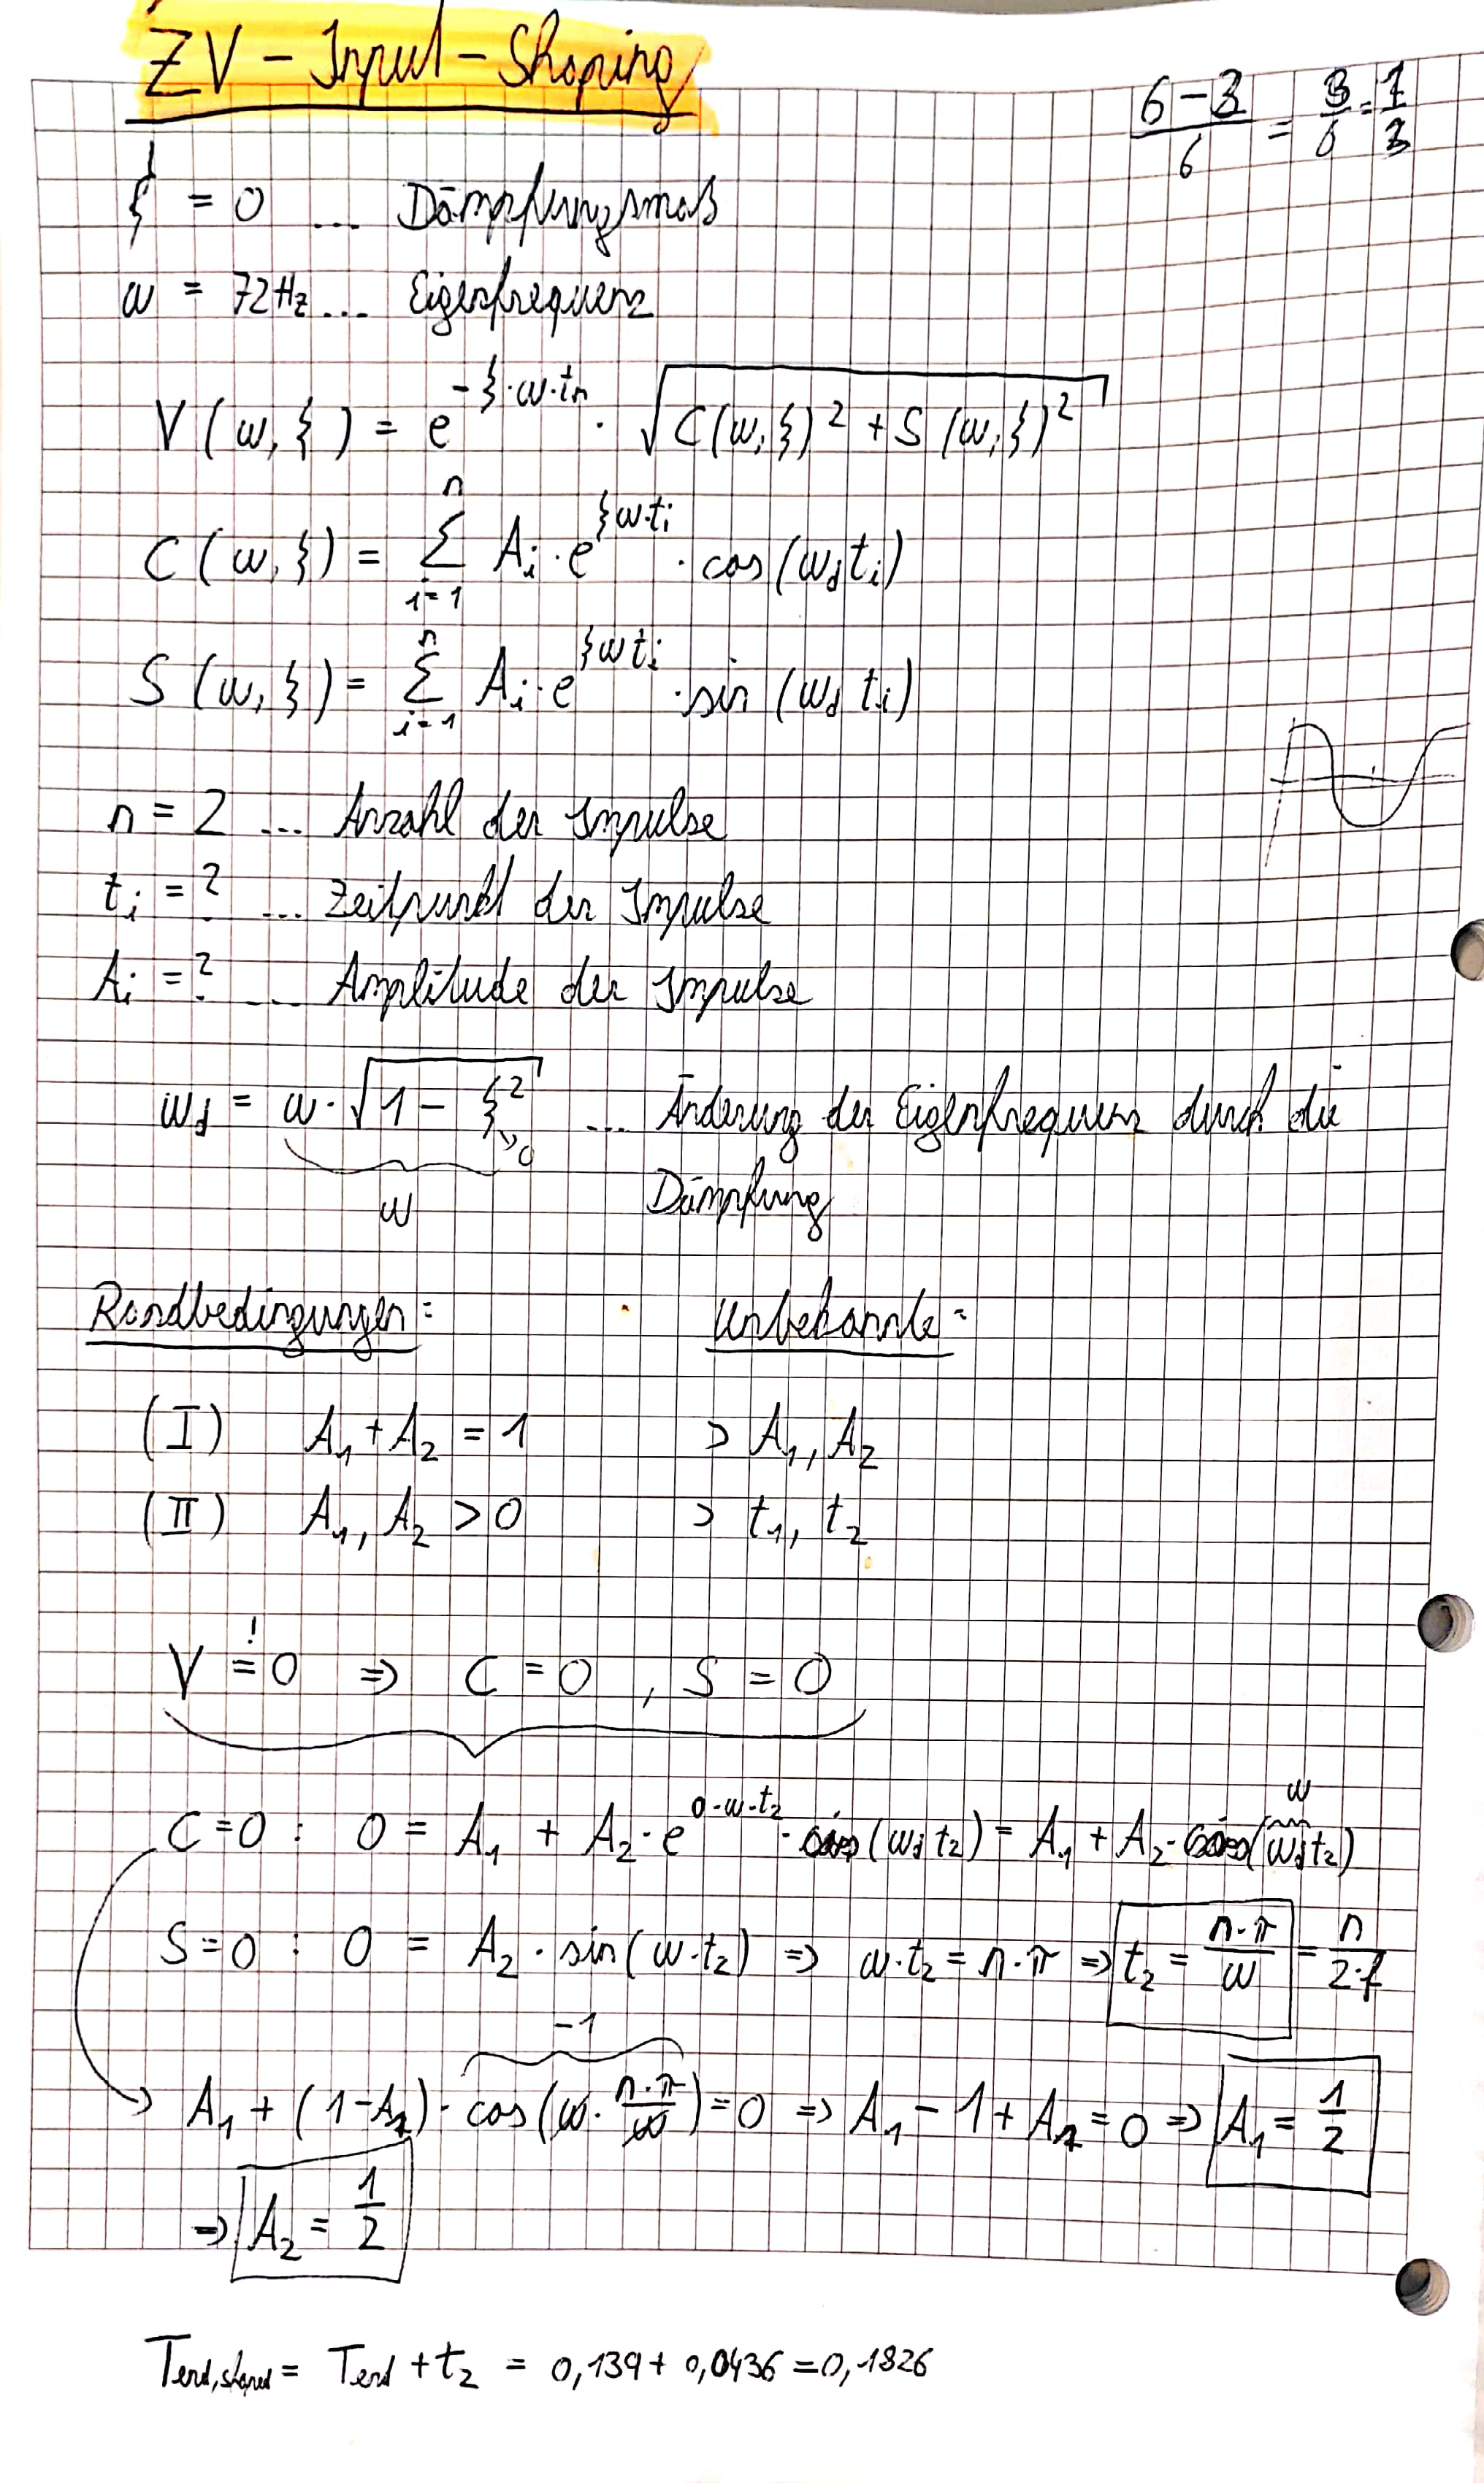 ZV - Input - Shaping
6 - 3 / 6 = 3 / 6 = 1 / 2
ξ = 0 ... Dämpfungsmaß
ω = 72Hz ... Eigenfrequenz
V(ω,ξ) = e^(-ξ·ω·tn) · √(C(ω,ξ)² + S(ω,ξ)²)
C(ω,ξ) = Σ_{i=1}^{n} A_i · e^(ξωt_i) · cos(ω_d t_i)
S(ω,ξ) = Σ_{i=1}^{n} A_i · e^(ξωt_i) · sin(ω_d t_i)
n = 2 ... Anzahl der Impulse
t_i = ? ... Zeitpunkt der Impulse
A_i = ? ... Amplitude der Impulse
ω_d = ω · √(1 - ξ²) ... Änderung der Eigenfrequenz durch die
0
ω
Dämpfung
Randbedingungen: Unbekannte:
(I) A₁ + A₂ = 1 > A₁, A₂
(II) A₁, A₂ > 0 > t₁, t₂
V =! 0 ⇒ C = 0 , S = 0
ω
C = 0 : 0 = A₁ + A₂ · e^(0·ω·t₂) · cos(ω_d t₂) = A₁ + A₂ · cos(ω_d t₂)
S = 0 : 0 = A₂ · sin(ω·t₂) ⇒ ω·t₂ = n·π ⇒ t₂ = n·π / ω = n / 2·f
-1
A₁ + (1 - A₁) · cos(ω · n·π / ω) = 0 ⇒ A₁ - 1 + A₁ = 0 ⇒ A₁ = 1 / 2
⇒ A₂ = 1 / 2
T_end,shaped = T_end + t₂ = 0,139 + 0,0436 = 0,1826